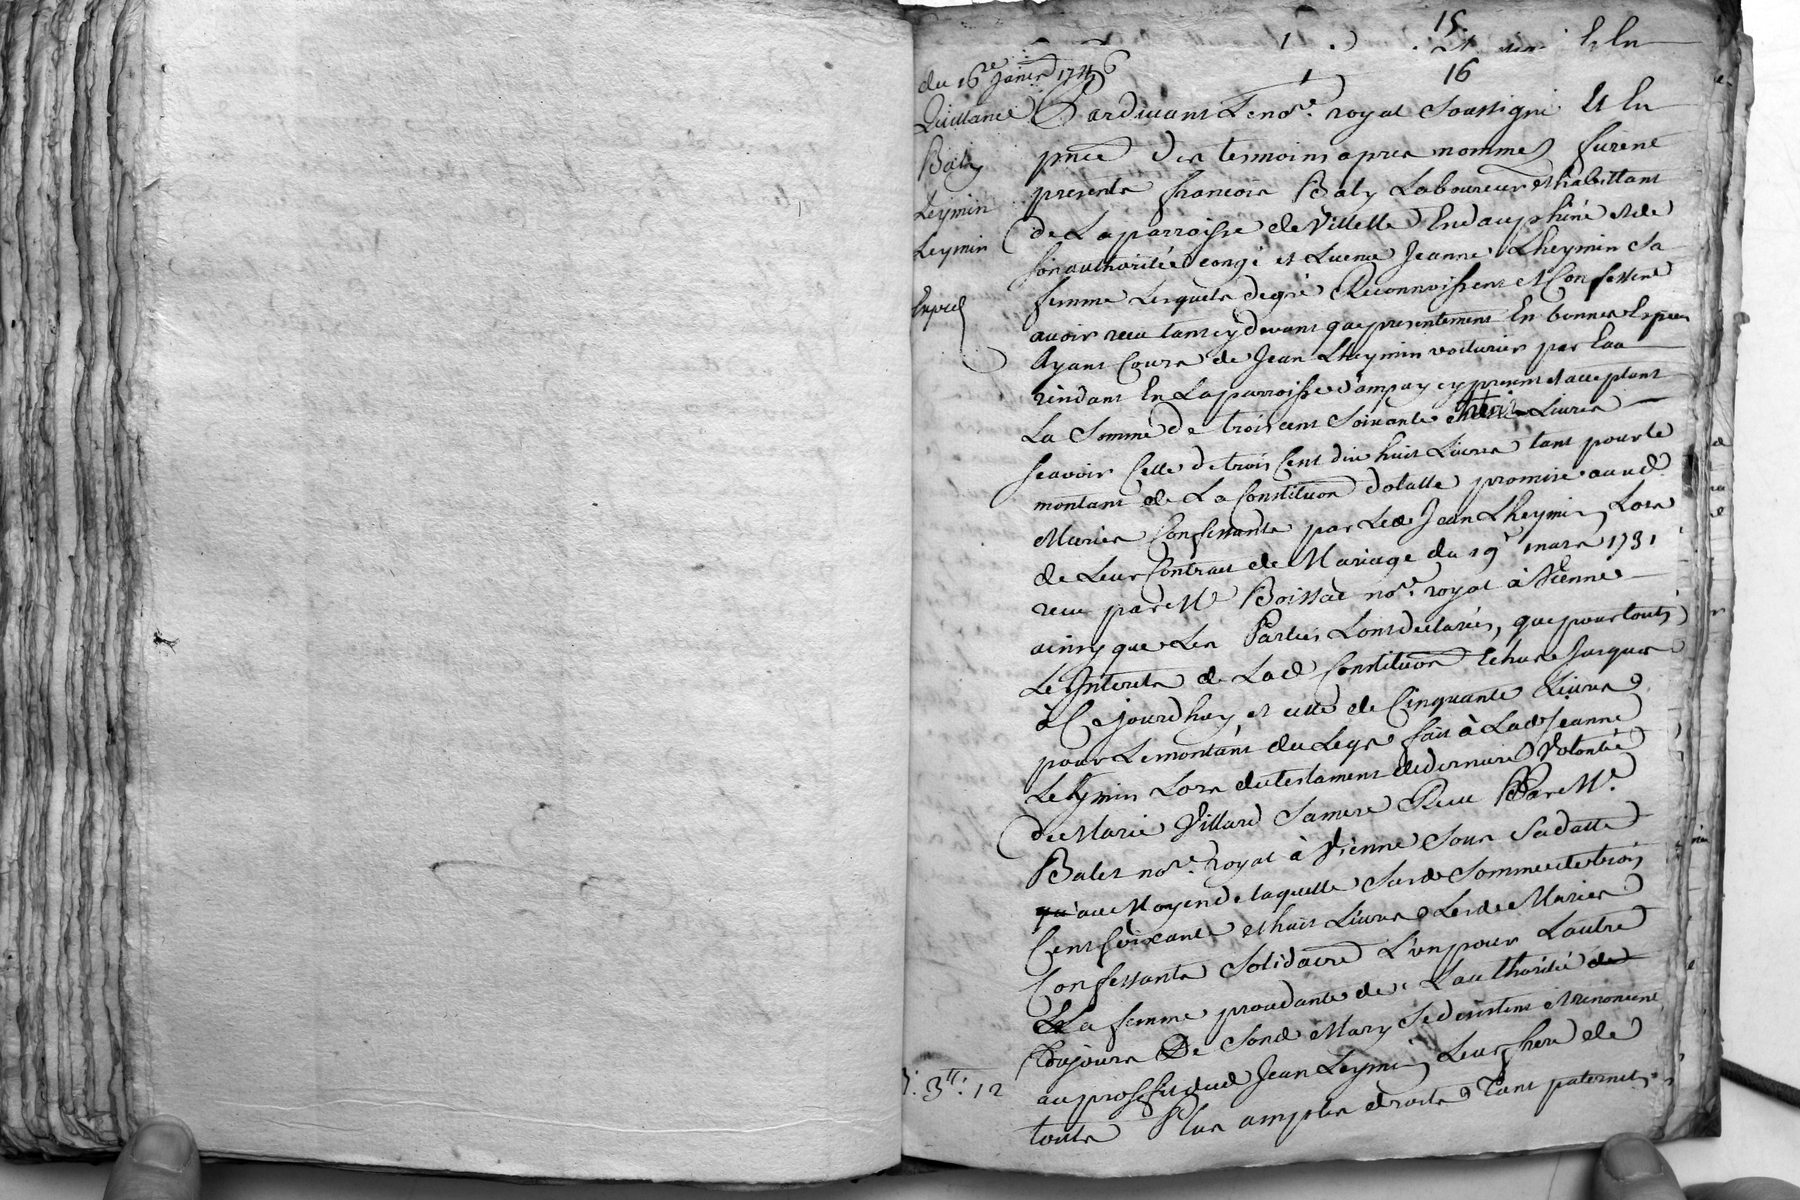 15
16
du 16re janvr 1746
Quittance
Baty
Leymin
Leymin
Exped
Pardevant Le nore. royal Soussigné Et En
pnce des tesmoins apres nommes furent
presents francois Baty Laboureur et habittant
de La parroisse de Villette En dauphiné et de
son authorité congé et Licence Jeanne Lheymin Sa
femme Lesquels de gré Reconnoissent et Confessent
avoir receu tant cy devant que presentement En bonnes Especes
Ayant Cours de Jean Lheymin voiturier par Eau
rèsidant En La parroisse d'ampuy cy present et acceptant
La Somme de trois cent Soixante et huit Livres
sçavoir Celle de trois Cent dix huit Livres tant pour le
montant de La Constituon dotalle promise aux d.
Mariés Confessants par Led Jean Lheymin Lors
de Leur Contract de Mariage du 19e mars 1731
receu par Me Boissac nore. royal à Vienne
ainsy que Les Parties L'ont declarés, que pour touts
Le Interets de Lad Constituon Echus Jusques
à Ce jourdhuy, et celle de Cinquante Livres
pour Le montant du Legs fait à Lad Jeanne
Leymin Lors du testament de derniere Volonté
de Marie Villard Sa mere Receu Par Me.
Balet nore. royal à Vienne Sous Sa datte
au Moyen de laquelle Susde Somme de trois
Cent soixante et huit Livres Lesds Mariés
Confessants Solidaire L'un pour L'autre
La femme procedante de L'authorité
toujours De Sond Mary Se desistent et renoncent
au proffit dud Jean Leymin Leur frere de
touts Plus amples droits Tant paternels
3tt: 12